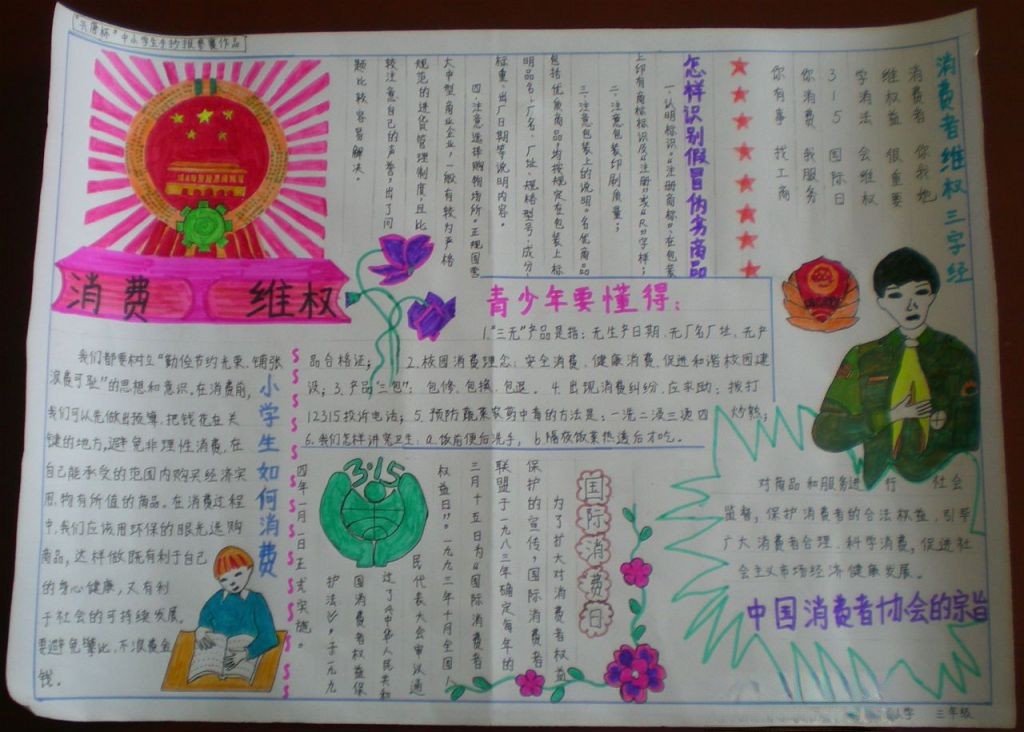 中小学生手抄报参赛作品
消费 维权
消费者维权三字经
消费者 你我他
维权益 很重要
学消法 会维权
315 国际日
你消费 我服务
你有事 找工商
怎样识别假冒伪劣商品
一、认明标识。“注册商标”在包装
上印有商标标识及“注册”或“R”字样；
二、注意包装印刷质量；
三、注意包装上的说明。名优商品
包括优质商品，均按规定在包装上标
明品名、厂名、厂址、规格型号、成分、
标重、出厂日期等说明内容。
四、注意选择购物场所。正规国营
大中型商业企业，一般有较为严格
规范的进货管理制度，且比
较注意自己的声誉，出了问
题比较容易解决。
青少年要懂得：
1.“三无”产品是指：无生产日期、无厂名厂址、无产
品合格证； 2.校园消费理念：安全消费、健康消费、促进和谐校园建
设；3.产品“三包”：包修、包换、包退。4.出现消费纠纷，应求助：拨打
12315投诉电话；5.预防蔬菜农药中毒的方法是：一洗二浸三烫四 炒熟；
6.我们怎样讲究卫生：a.饭前便后洗手，b.隔夜饭菜热透后才吃。
小学生如何消费
我们都要树立“勤俭节约光荣、铺张
浪费可耻”的思想和意识。在消费前，
我们可以先做出预算，把钱花在关
键的地方，避免非理性消费，在
自己能承受的范围内购买经济实
惠、物有所值的商品。在消费过程
中，我们应该用环保的眼光选购
商品，这样做既有利于自己
的身心健康，又有利
于社会的可持续发展。
要避免攀比，不浪费金
钱。
3·15
国际消费日
为了扩大对消费者权益
保护的宣传，国际消费者
联盟于一九八三年确定每年的
三月十五日为“国际消费者
权益日”。一九九三年十月全国人
民代表大会审议通
过了《中华人民共和
国消费者权益保
护法》，于一九九
四年一月一日正式实施。
对商品和服务进 行 社会
监督，保护消费者的合法权益，引导
广大消费者合理、科学消费，促进社
会主义市场经济健康发展。
中国消费者协会的宗旨
小学 三年级